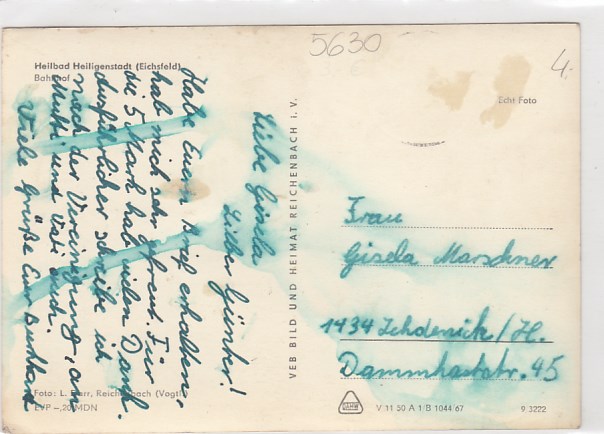 5630
4.
Heilbad Heiligenstadt (Eichsfeld)
Bahnhof
Liebe Gisela
Lieber Günter!
Habe Euern Brief erhalten,
hab mich sehr gefreut. Für
die 5 Mark hab vielen Dank.
Ausführlicher schreibe ich
nach der Vereinigung, an
Mutti und Vati auch.
Viele Grüße Eur Burkhard
Foto: L. Darr, Reichenbach (Vogtl)
EVP –,20 MDN
VEB BILD UND HEIMAT REICHENBACH i. V.
Echt Foto
Frau
Gisela Marschner
1434 Zehdenick/H.
Dammhaststr. 45
V 11 50 A 1/B 1044 67
9 3222